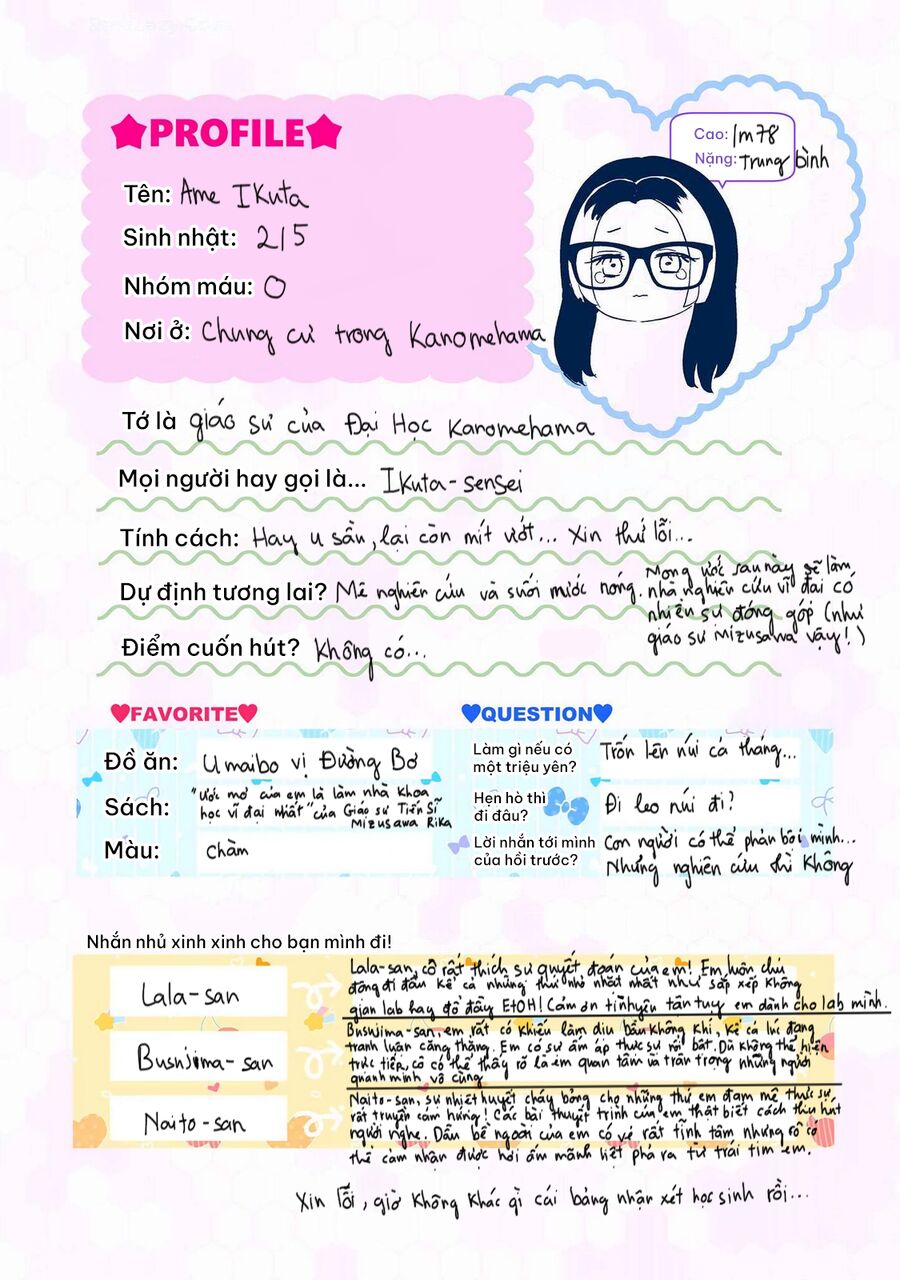 ★PROFILE★
Cao: 1m78
Nặng: trung bình
Tên: Ame Ikuta
Sinh nhật: 2/5
Nhóm máu: O
Nơi ở: Chung cư trong Kanomehama
Tớ là giáo sư của Đại Học Kanomehama
Mọi người hay gọi là... Ikuta-sensei
Tính cách: Hay u sầu, lại còn mít ướt... Xin thứ lỗi...
Dự định tương lai? Mê nghiên cứu và suối nước nóng. Mong ước sau này sẽ làm
nhà nghiên cứu vĩ đại có
nhiều sự đóng góp (như
giáo sư Mizusawa vậy!)
Điểm cuốn hút? Không có...
♥FAVORITE♥
Đồ ăn: Umaibo vị Đường Bơ
Sách: "Ước mơ của em là làm nhà khoa
học vĩ đại nhất" của Giáo sư Tiến Sĩ
Mizusawa Rika
Màu: chàm
♥QUESTION♥
Làm gì nếu có
một triệu yên?
Trốn lên núi cả tháng...
Hẹn hò thì
đi đâu?
Đi leo núi đi?
Lời nhắn tới mình
của hồi trước?
Con người có thể phản bội mình...
Nhưng nghiên cứu thì không
Nhắn nhủ xinh xinh cho bạn mình đi!
Lala-san
Lala-san, cô rất thích sự quyết đoán của em! Em luôn chủ
động đi đầu kể cả những thứ nhỏ nhặt nhất như sắp xếp không
gian lab hay đổ đầy EtOH! Cảm ơn tình yêu tận tụy em dành cho lab mình.
Bushijima-san
Bushijima-san, em rất có khiếu làm dịu bầu không khí, kể cả lúc đang
tranh luận căng thẳng. Em có sự ấm áp thực sự nổi bật. Dù không thể hiện
trực tiếp, cô có thể thấy rõ là em quan tâm và trân trọng những người
quanh mình vô cùng
Naito-san
Naito-san, sự nhiệt huyết cháy bỏng cho những thứ em đam mê thực sự
rất truyền cảm hứng! Các bài thuyết trình của em thật biết cách thu hút
người nghe. Dẫu bề ngoài của em có vẻ rất tịnh tâm nhưng cô có
thể cảm nhận được hơi ấm mãnh liệt phả ra từ trái tim em.
Xin lỗi, giờ không khác gì cái bảng nhận xét học sinh rồi...